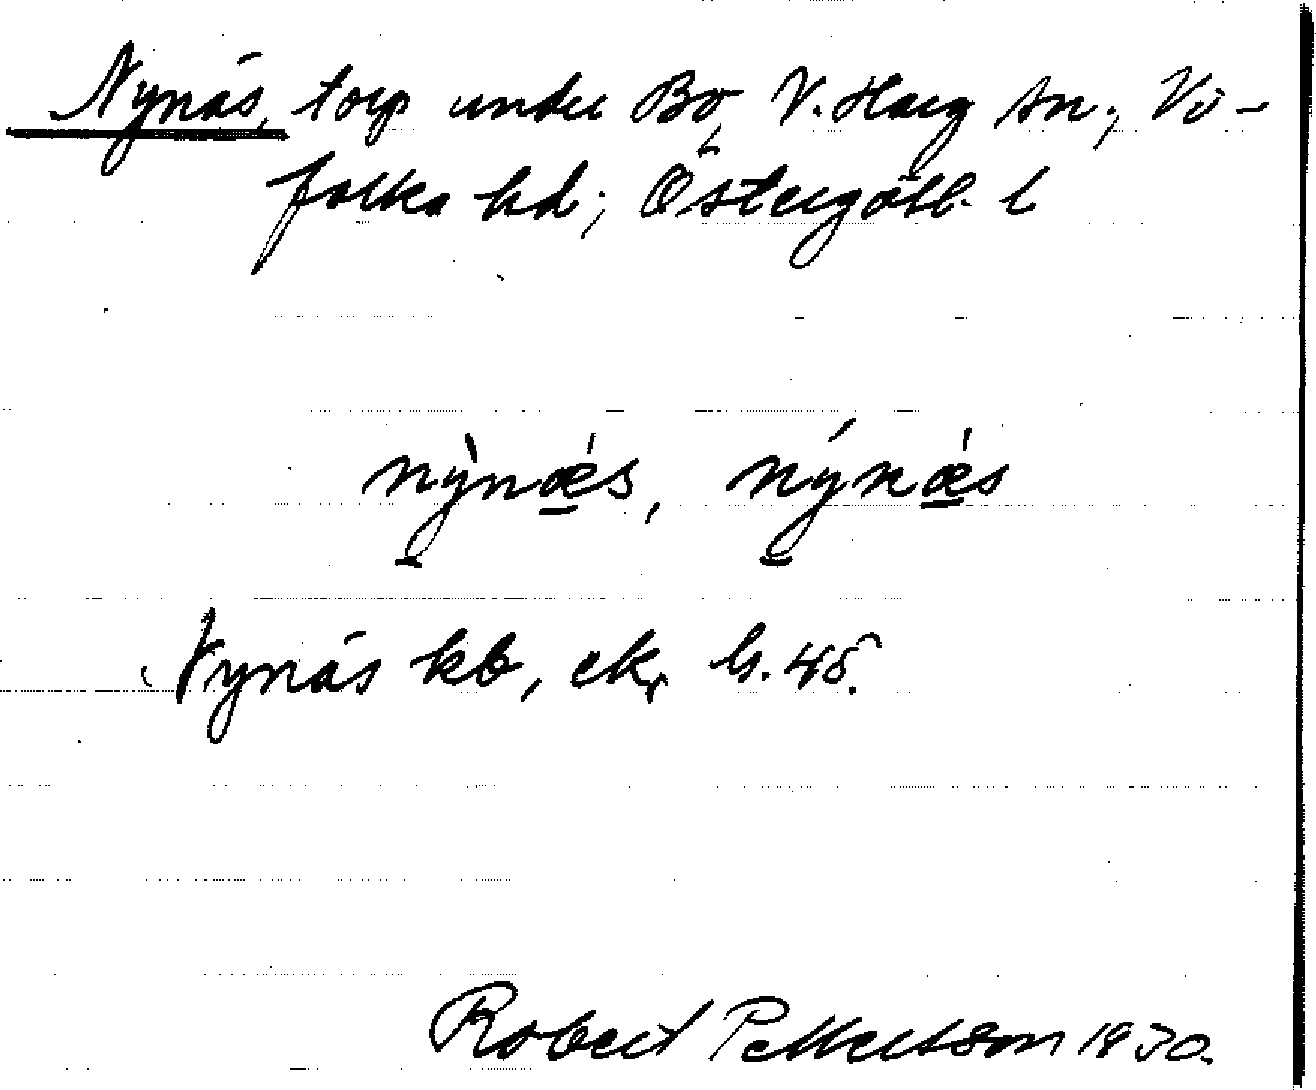 Nynäs, torp under Bo, V. Harg sn; Vi-
folka hd; Östergötl. l
nỳnæ̀s, nýnæ̀s
Nynäs kb, ek, bl. 45.
Robert Pettersson 1930.